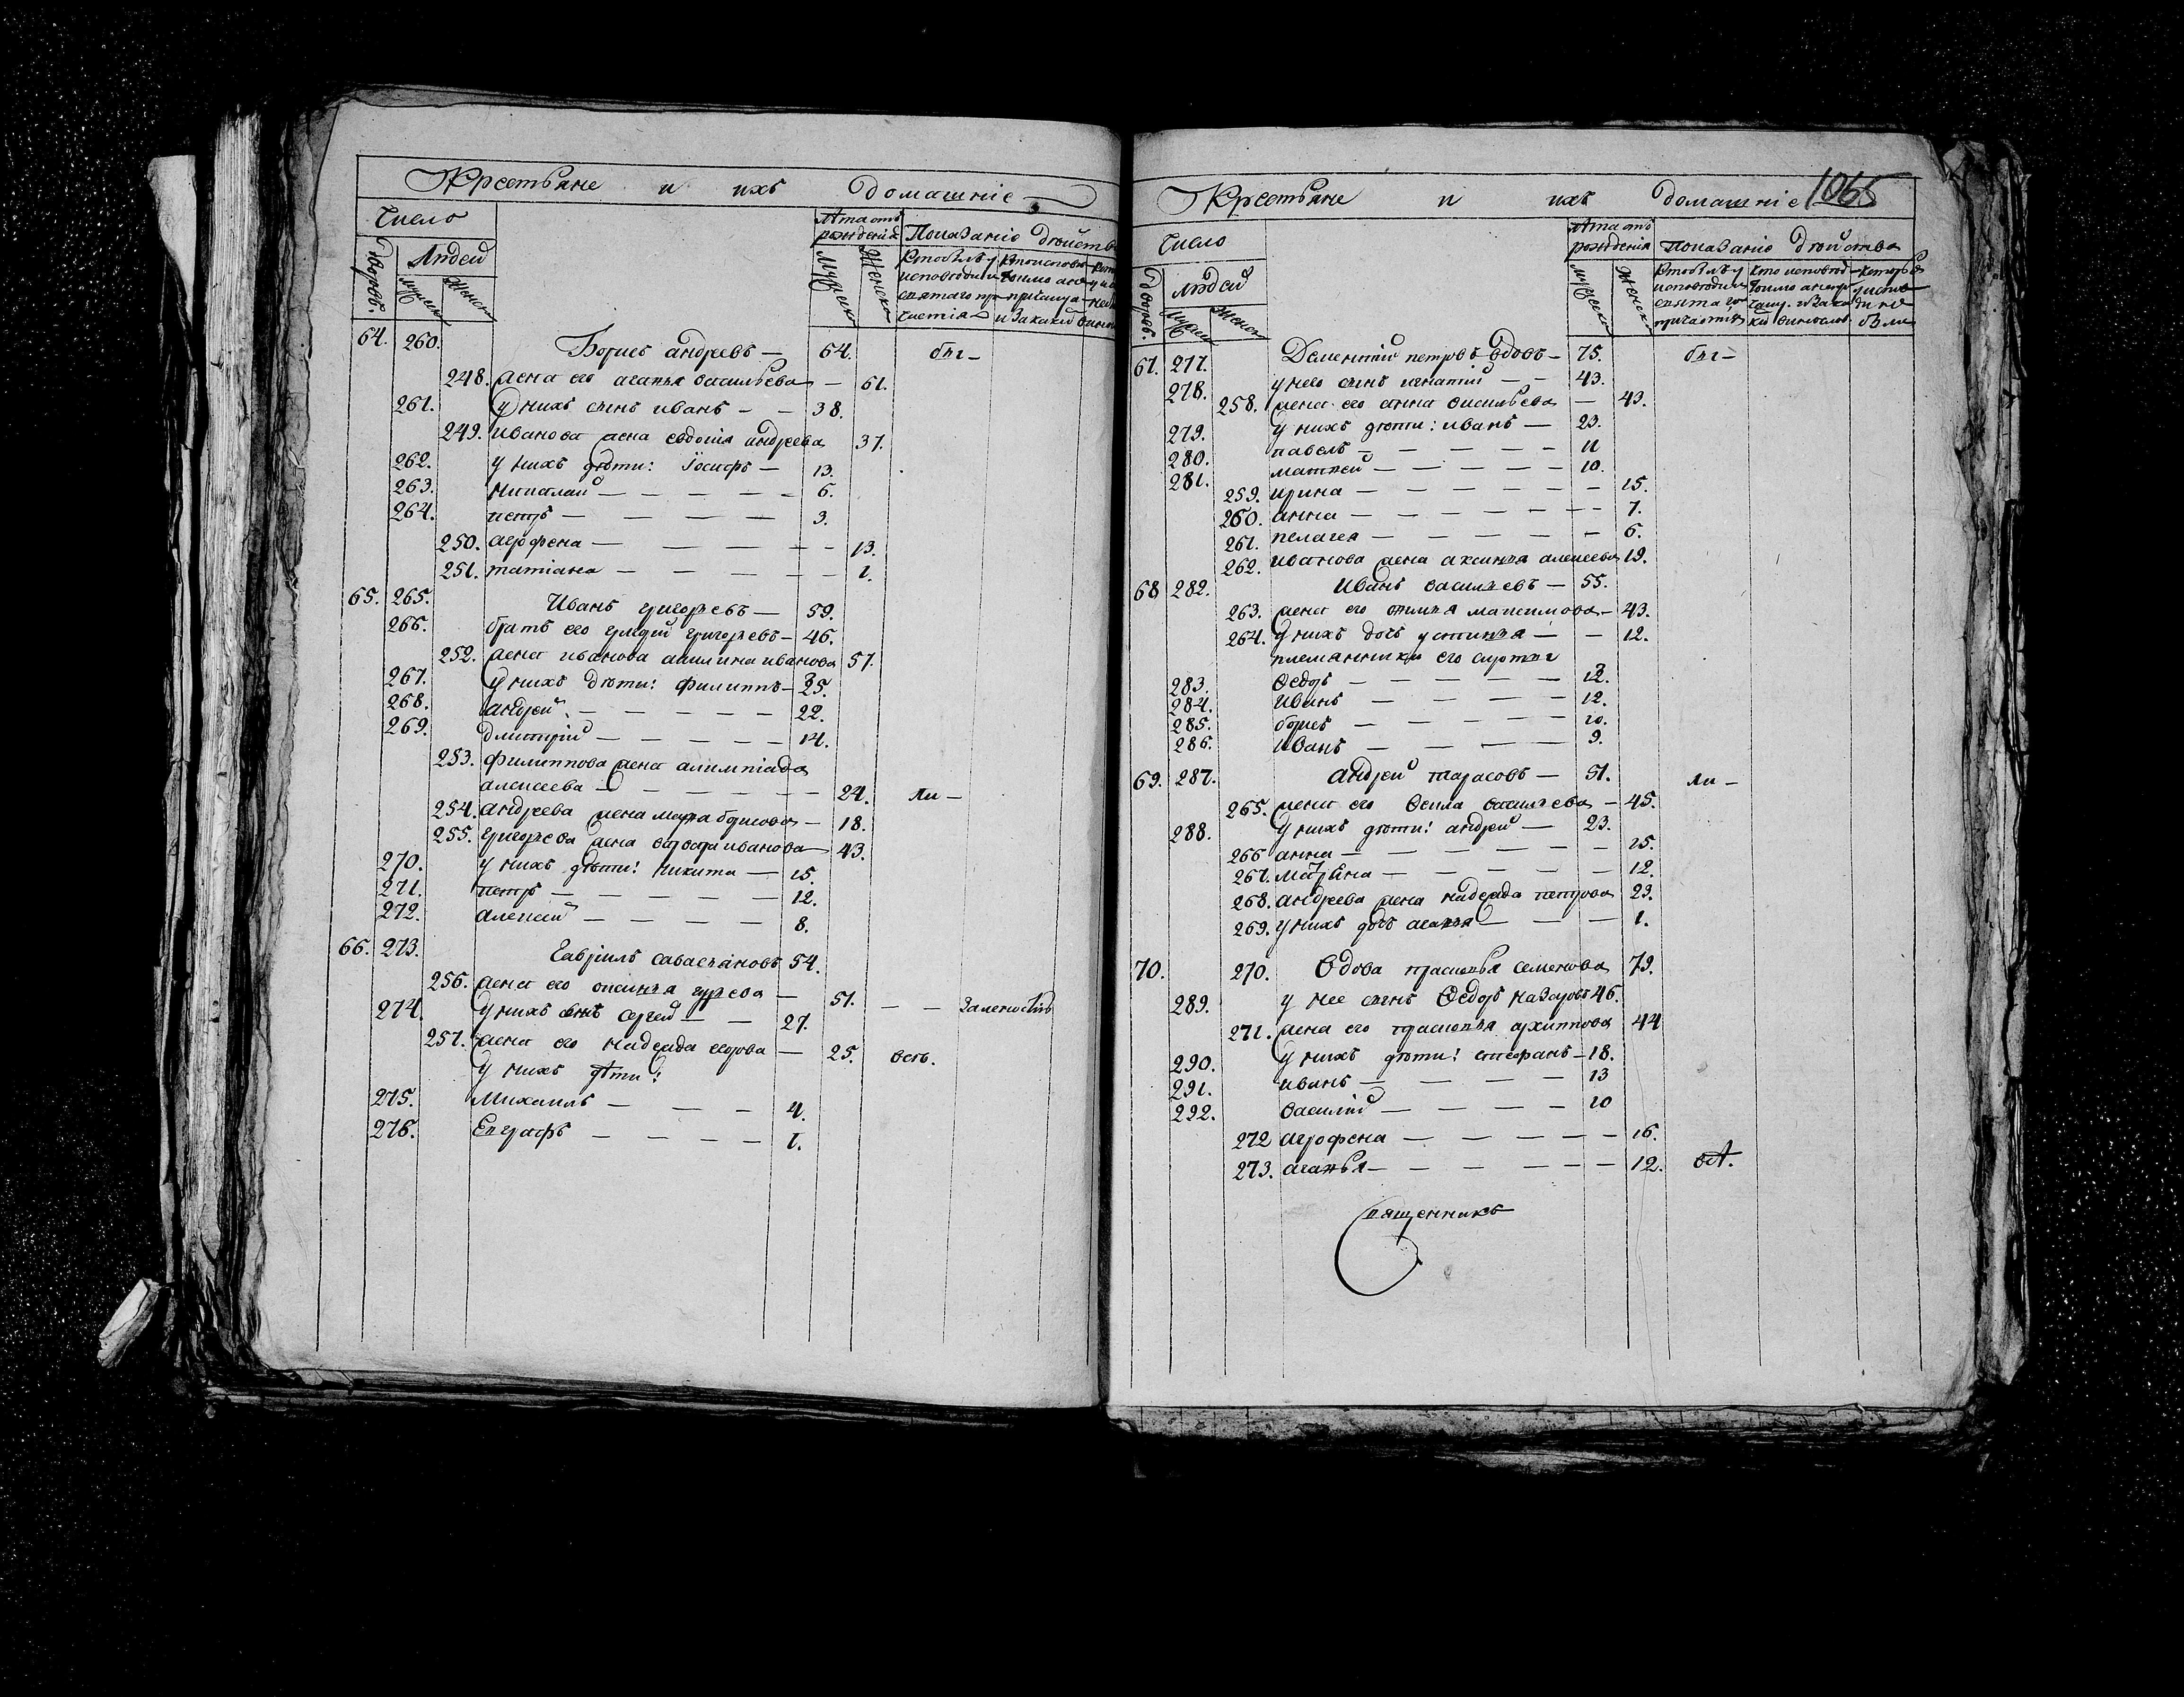 Крестьяне и ихъ домашніе
Число
Лѣта отъ рожденія
Показаніе дѣйства
Дворовъ. Людей Мужеск Женск
Мужеск Женск
64. 260. Борисъ андреевъ — 64. бы —
248. жена его агапья васильева — 61.
261. у нихъ сынъ иванъ — — 38.
249. иванова жена евдокія андреева 37.
262. у нихъ дѣти: Іосифъ — 13.
263. николай — — — — — 6.
264. петръ — — — — 3.
250. агрофена — — — — — 13.
251. татіана — — — — — 1.
65. 265. Иванъ григорьевъ — 59.
266. братъ его григорьевъ — 46.
252. жена иванова акилина иванова 57.
267. у нихъ дѣти: филиппъ — 25.
268. андрей — — — — — 22.
269. дмитрій — — — — — 14.
253. филиппова жена алимпіада
алексеева — — — — — 24. ли —
254. андреева жена марья борисова — 18.
255. григорьева жена варвара иванова 43.
270. у нихъ дѣти: никита — 15.
271. петръ — — — — — 12.
272. алексей — — — — 8.
66. 273. Гавріилъ савастьяновъ 54.
256. жена его аксинья — 51. — —
274. у нихъ сынъ сергей — — 27.
257. жена его надежда егорова — 25. всъ.
у нихъ дѣти:
275. Михаилъ — — — 4.
276. Евграфъ — — — — 1.
Крестьяне и ихъ домашніе 1066
Число
Лѣта отъ рожденія
Показаніе дѣйства
Дворовъ. Людей Мужеск Женск
Мужеск Женск
67. 277. Дементій петровъ вдовъ — 75. бы —
278. у него сынъ игнатій — — 43.
258. жена его анна васильева — 43.
279. у нихъ дѣти: иванъ — 23.
280. павелъ — — — — — 11
281. матвей — — — — — 10.
259. ирина — — — — — — 15.
260. анна — — — — — — 7.
261. пелагея — — — — — 6.
262. иванова жена аксинья алексеева 19.
68 282. Иванъ васильевъ — 55.
263. жена его максимова — 43.
264. у нихъ дочь устинья — — 12.
племянники его
283. Ѳедоръ — — — — — 12.
284. Иванъ — — — — 12.
285. борисъ — — — — — 10.
286. иванъ — — — — 9.
69. 287. андрей тарасовъ — 51. ли —
265. жена его васильева — 45.
288. у нихъ дѣти: андрей — 23.
266 анна — — — — — — 15.
267. марѳина — — — — — 12.
268. андреева жена надежда петрова 23.
269. у нихъ дочь агапья — — — 1.
70. 270. Вдова прасковья семенова 79.
289. у нее сынъ Ѳедоръ назаровъ 46.
271. жена его прасковья архиппова 44
290. у нихъ дѣти: стефанъ — 18.
291. иванъ — — — — — 13
292. василій — — — — — 10
272 агрофена — — — — — 16.
273. агапья — — — — — — 12.
Священникъ